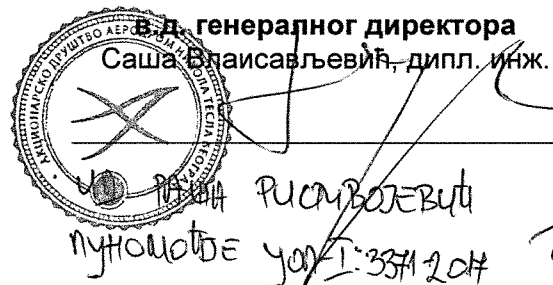 в.д. генералног директора
Саша Влаисављевић, дипл. инж.
АКЦИОНАРСКО ДРУШТВО АЕРОДРОМ НИКОЛА ТЕСЛА БЕОГРАД
пуномоћје УОП-I:3371-2017